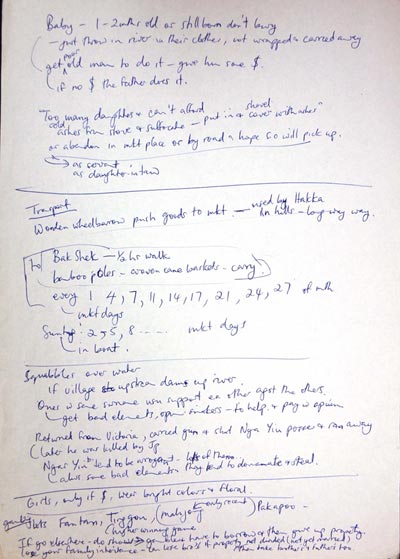 Baby – 1-2 mths old or stillborn don't bury
– just throw in river in their clothes, not wrapped & carried away
get poor old man to do it – give him some $.
if no $ the father does it.
Too many daughters & can't afford
cold ashes from stove & suffocate – put in & cover with ashes" shovel
or abandon in mkt place or by road & hope s.o will pick up.
as servant
as daughter-in-law
Transport
Wooden wheelbarrow push goods to mkt. – used by Hakka
in hills – long way way.
to Bak Shek – ½ hr walk
bamboo poles – woven cane baskets – carry.
every 1 4, 7, 11, 14, 17, 21, 24, 27 of mth
mkt days
2, 5, 8 ..... mkt days
in boat.
Squabbles over water
If village upstream dams up river.
Ones w same surname wn support ea other agst the others.
get bad elements, opium smokers – to help & pay w opium
Returned from Victoria, carried gun & shot Nga Yiu person & ran away
later he was killed by Jp
Ngar Yiu tend to be arrogant – lots of them.
also some bad elements they tend to dominate & steal.
Girls, only if $, wear bright colours & floral.
Slots fantan: Tin gow, (mahjong only recent) Pakapoo.
higher winning game
If go elsewhere – do have to borrow & then give up property.
use your family inheritance – can lose bro's if property not divided (not yet married)
then take brother's & mother's too.